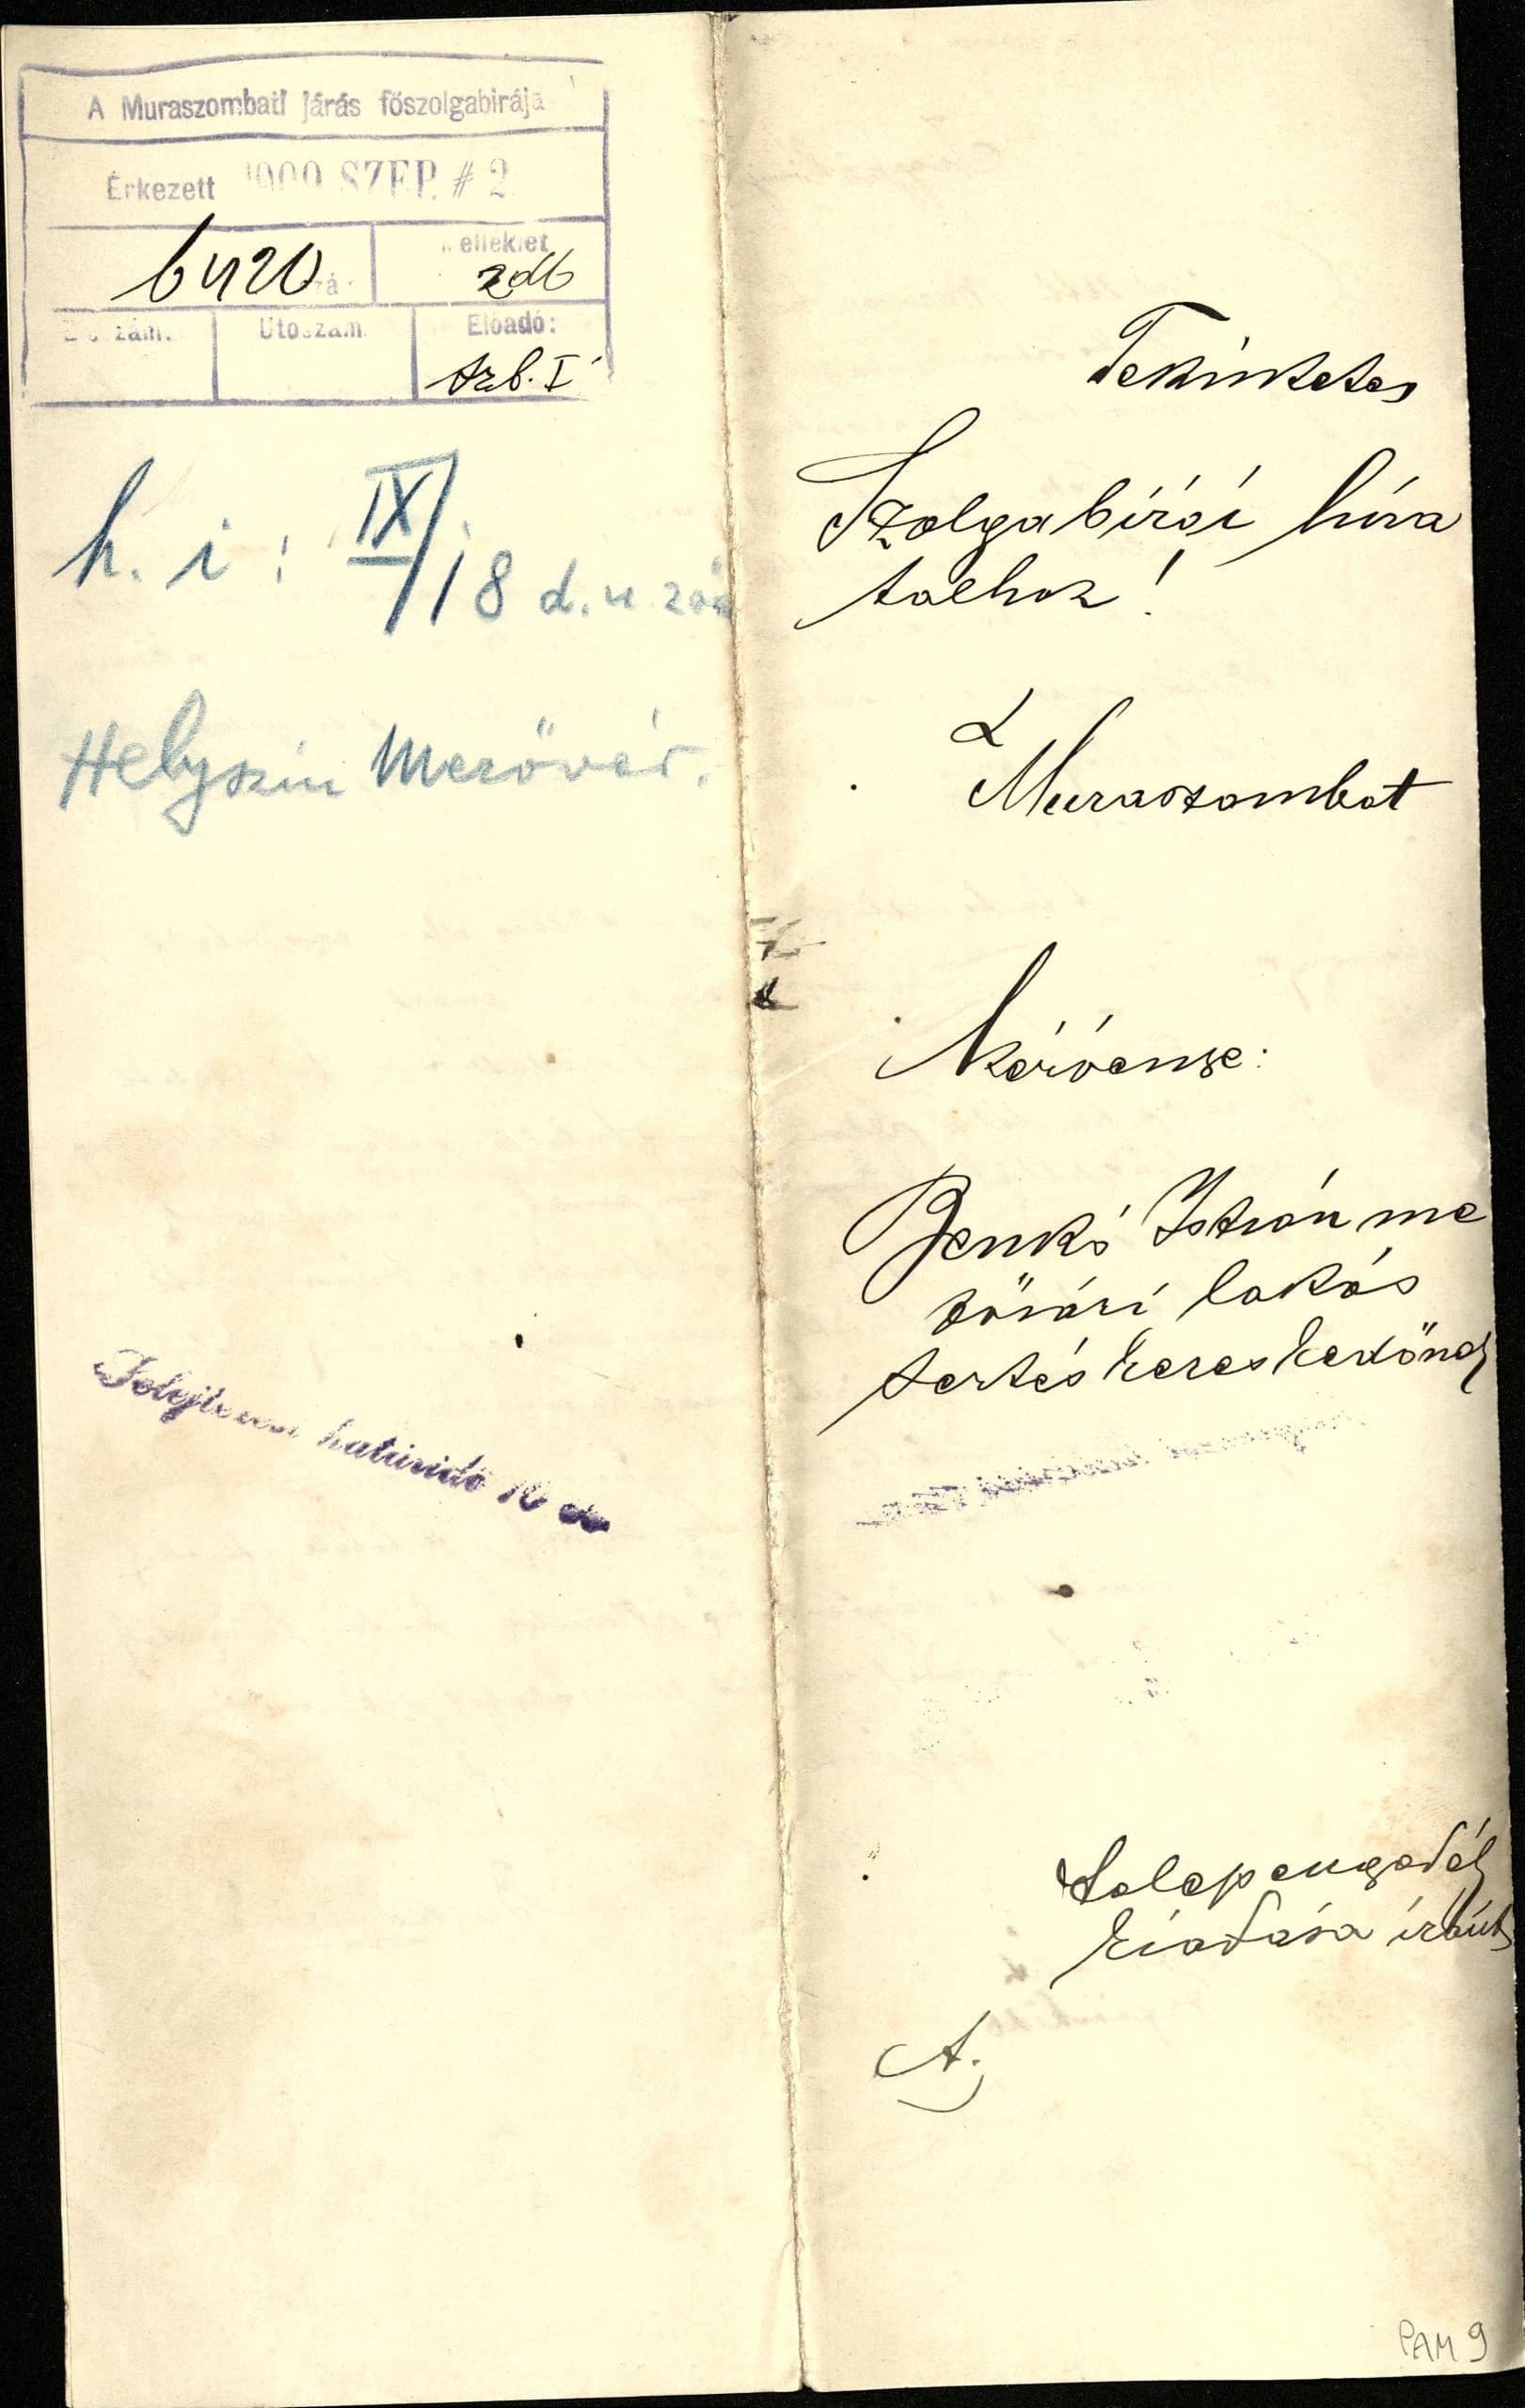 A Muraszombati járás főszolgabirája
Érkezett 1900 SZEP. # 2
6420
Melléklet
2 db
Utószám.
Előadó:
szb. I
h. i: IX/18 d.u. 2
Helyszin Mezővár.
határidő
Tekintetes
Szolgabírói hiva
talhoz!
Muraszombat
Kérvénye:
Benkó István me
zővári lakós
sertés kereskedőnek
kiadása iránt
A.
PAM 9